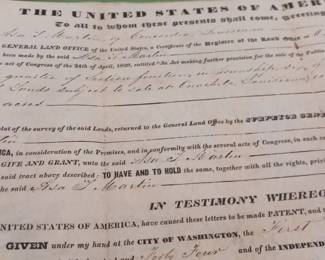 THE UNITED STATES OF AMER
To all to whom these presents shall come, Greeting
Asa S. Martin, of Concordia, Louisiana
GENERAL LAND OFFICE of the United States, a Certificate of the Register of the LAND OFFICE at
been made by the said Asa S. Martin
act of Congress of the 24th of April, 1820, entitled "An Act making further provision for the sale of the Public
quarter of Section fourteen in
Lands subject to sale at Ouachita, Louisiana
acres
plat of the survey of the said Lands, returned to the General Land Office by the SURVEYOR GENER
tin
ICA, in consideration of the Premises, and in conformity with the several acts of Congress, in such
GIVE AND GRANT, unto the said Asa S. Martin
said tract above described: TO HAVE AND TO HOLD the same, together with all the rights, privi
the said Asa S. Martin
IN TESTIMONY WHEREO
UNITED STATES OF AMERICA, have caused these letters to be made PATENT, and the
GIVEN under my hand at the CITY OF WASHINGTON, the First
hundred and Forty Four and of the INDEPEND